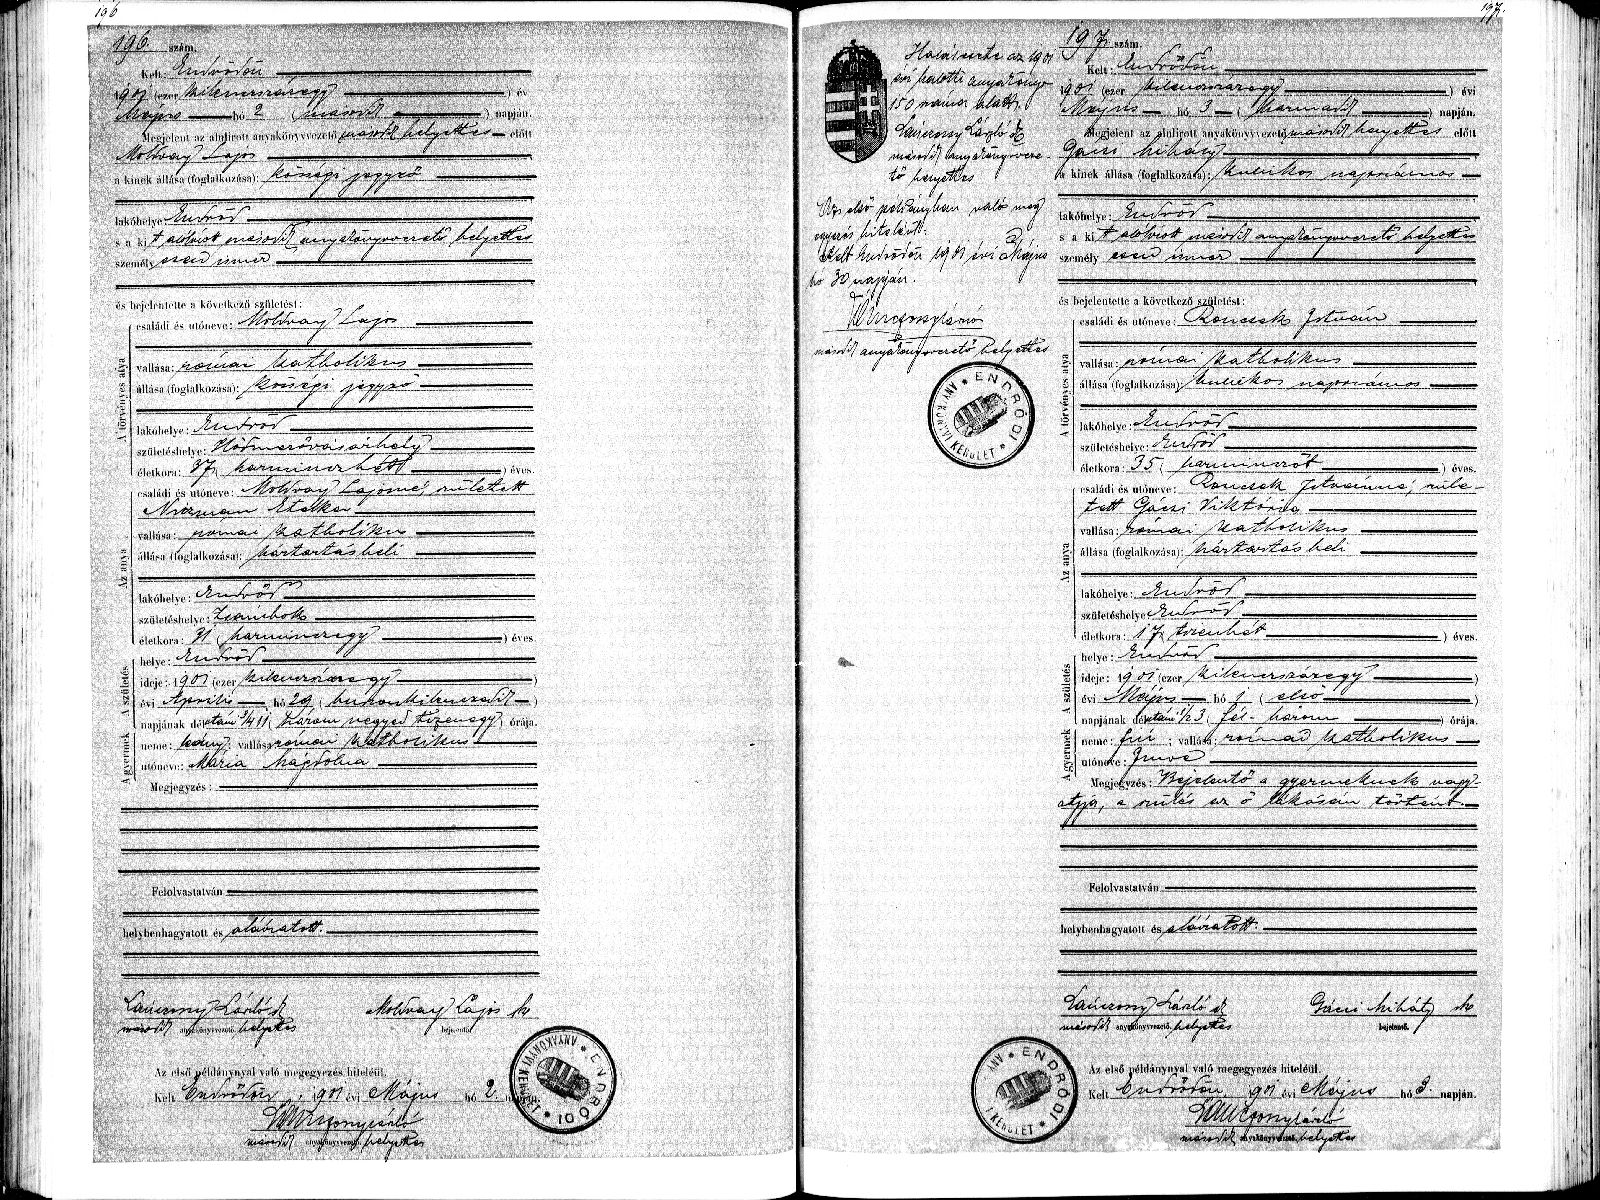 196
196. szám.
Kelt: Endrődön
1901 (ezer kilencszázegy) év
Május hó 2 (második) napján.
Megjelent az alulirott anyakönyvvezető második helyettes előtt
Moldvay Lajos
a kinek állása (foglalkozása): községi jegyző
lakóhelye: Endrőd
s a kit alólirott második anyakönyvvezető helyettes
személyesen ismer
és bejelentette a következő születést:
A törvényes atya
családi és utóneve: Moldvay Lajos
vallása: római katholikus
állása (foglalkozása): községi jegyző
lakóhelye: Endrőd
születéshelye: Hódmezővásárhely
életkora: 37 (harminczhét) éves.
Az anya
családi és utóneve: Moldvay Lajosné, született
Etelka
vallása: római katholikus
állása (foglalkozása): háztartásbeli
lakóhelye: Endrőd
születéshelye: Zsámbok
életkora: 31 (harminczegy) éves.
A születés
helye: Endrőd
ideje: 1901 (ezer kilenczszázegy)
évi Április hó 29 (huszonkilenczedik)
napjának délután 3/4 11 (három negyed tizenegy) órája.
A gyermek
neme: leány; vallása: római katholikus
utóneve: Mária Magdolna
Megjegyzés:
Felolvastatván
helybenhagyatott és aláíratott.
Lánczony László sk Moldvay Lajos sk
második anyakönyvvezető helyettes bejelentő
Az első példánynyal való megegyezés hiteléül.
Kelt Endrődön, 1901 évi Május hó 2. napján.
Lánczony László
második anyakönyvvezető helyettes
ENDRŐDI ANYAKÖNYVI KERÜLET
197.
Halálesete az 1901
évi halotti anyakönyv
150 száma alatt.
Lánczony László sk
második anyakönyvveze-
tő helyettes
Az első példányban való meg
egyezés hiteléül.
Kelt Endrődön 1901 évi Május
hó 30 napján.
Lánczony László
második anyakönyvvezető helyettes
ENDRŐDI ANYAKÖNYVI KERÜLET
197 szám.
Kelt: Endrődön
1901 (ezer kilenczszázegy) évi
Május hó 3 (harmadik) napján.
Megjelent az alulirott anyakönyvvezető második helyettes előtt
Gácsi Mihály
a kinek állása (foglalkozása): kubikos napszámos
lakóhelye: Endrőd
s a kit alólirott második anyakönyvvezető helyettes
személyesen ismer
és bejelentette a következő születést:
A törvényes atya
családi és utóneve: Roncsek István
vallása: római katholikus
állása (foglalkozása): kubikos napszámos
lakóhelye: Endrőd
születéshelye: Endrőd
életkora: 35 (harminczöt) éves.
Az anya
családi és utóneve: Roncsek Istvánné, szüle-
tett Gácsi Viktória
vallása: római katholikus
állása (foglalkozása): háztartásbeli
lakóhelye: Endrőd
születéshelye: Endrőd
életkora: 17 (tizenhét) éves.
A születés
helye: Endrőd
ideje: 1901 (ezer kilenczszázegy)
évi Május hó 1 (első)
napjának délután 1/2 3 (fél-három) órája.
A gyermek
neme: fiú; vallása: római katholikus
utóneve: Imre
Megjegyzés: Bejelentő a gyermeknek nagy-
atyja, a szülés az ő lakásán történt.
Felolvastatván
helybenhagyatott és aláíratott.
Lánczony László sk Gácsi Mihály sk
második anyakönyvvezető helyettes bejelentő.
Az első példánynyal való megegyezés hiteléül.
Kelt Endrődön, 1901 évi Május hó 3. napján.
Lánczony László
második anyakönyvvezető helyettes
ENDRŐDI ANY I KERÜLET